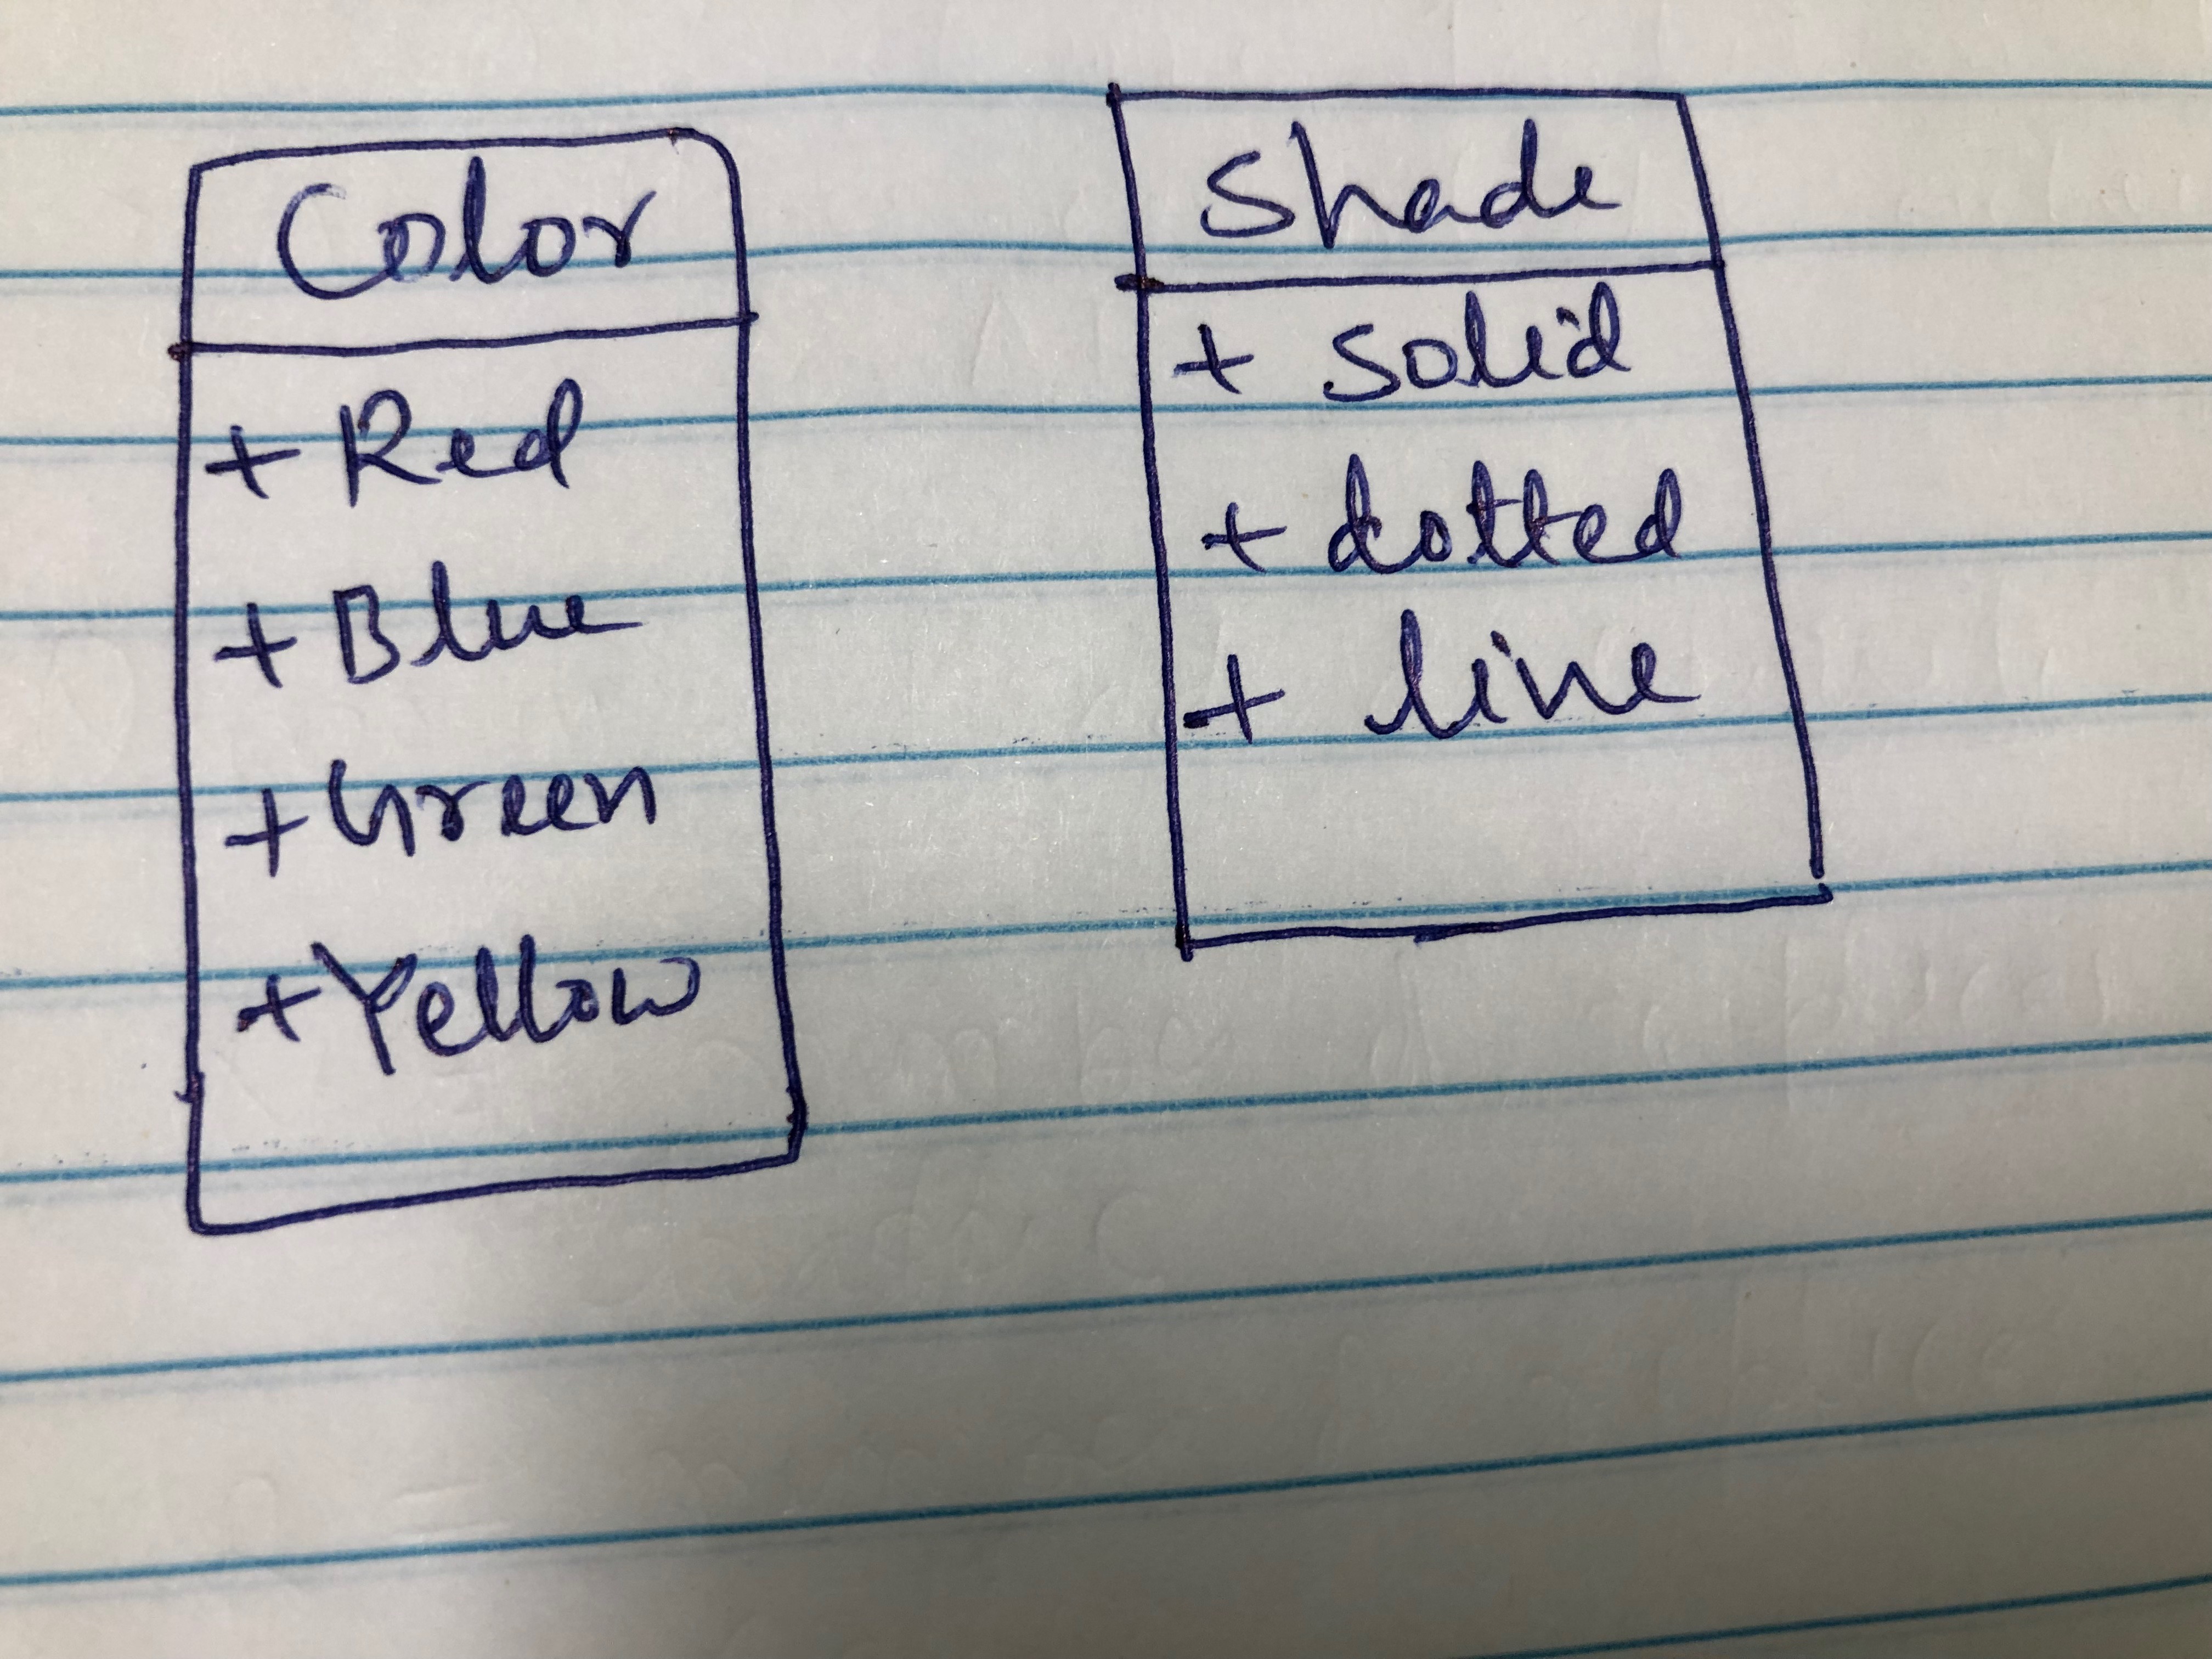 Color
+ Red
+ Blue
+ Green
+ Yellow
Shade
+ Solid
+ dotted
+ line